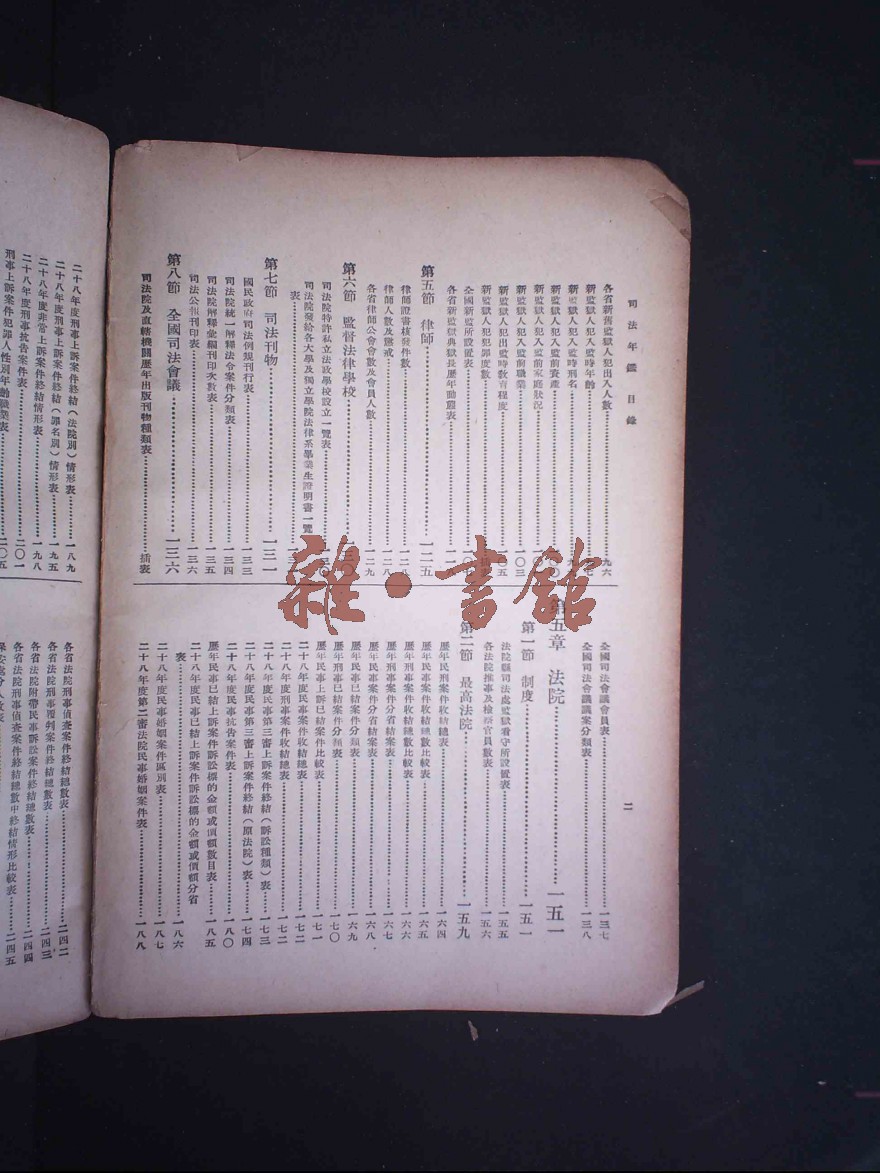 司法年鑑 目錄
二
各省新舊監獄人犯出入人數……九六
新監獄人犯入監時年齡
新監獄人犯入監時刑名
新監獄人犯入監前資產
新監獄人犯入監前家庭狀況
新監獄人犯入監前職業……一〇三
新監獄人犯出監時教育程度……一〇五
新監獄人犯犯罪度數
全國新監所設置表
各省新監獄典獄長歷年動態表
第五節 律師……一二五
律師證書核發件數……一二八
律師人數及懲戒……一二八
各省律師公會會數及會員人數……一二九
第六節 監督法律學校
司法院特許私立法政學校設立一覽表
司法院發給各大學及獨立學院法律系畢業生證明書一覽
表
第七節 司法刊物……一三一
國民政府司法例規刊行表……一三三
司法院統一解釋法令案件分類表……一三四
司法院解釋彙編刊印次數表……一三五
司法公報刊印表……一三六
第八節 全國司法會議……一三六
司法院及直轄機關歷年出版刊物種類表……插表
全國司法會議會員表……一三七
全國司法會議議案分類表……一三八
第五章 法院……一五一
第一節 制度……一五一
法院縣司法處監獄看守所設置表……一五五
各法院推事及檢察官員數表……一五六
第二節 最高法院……一五九
歷年民刑案件收結總表……一六四
歷年民事案件收結總數比較表……一六五
歷年刑事案件收結總數比較表……一六六
歷年民事案件分省結案表……一六七
歷年刑事案件分省結案表……一六八
歷年民事已結案件分類表……一六九
歷年刑事已結案件分類表……一七〇
歷年民事上訴已結案件比較表……一七一
二十八年度民事案件收結總表……一七二
二十八年度刑事案件收結總表……一七二
二十八年度民事第三審上訴案件終結（訴訟種類）表……一七三
二十八年度民事第三審上訴案件終結（原法院）表……一七四
二十八年度民事抗告案件表……一八〇
歷年民事已結上訴案件訴訟標的金額或價額數目表……一八五
二十八年度民事已結上訴案件訴訟標的金額或價額分省
表……一八六
二十八年度民事婚姻案件區別表……一八七
二十八年度第二審法院民事婚姻案件表……一八八
二十八年度刑事上訴案件終結（法院別）情形表……一八九
二十八年度刑事上訴案件終結（罪名別）情形表……一九五
二十八年度非常上訴案件終結情形表……一九八
二十八年度刑事抗告案件表……二〇一
刑事上訴案件犯罪人性別年齡職業表……二〇五
各省法院刑事偵查案件終結總數表……二四二
各省法院刑事覆判案件終結總數表……二四三
各省法院附帶民事訴訟案件終結總數表……二四四
各省法院刑事偵查案件終結總數中終結情形比較表……二四五
雜·書館